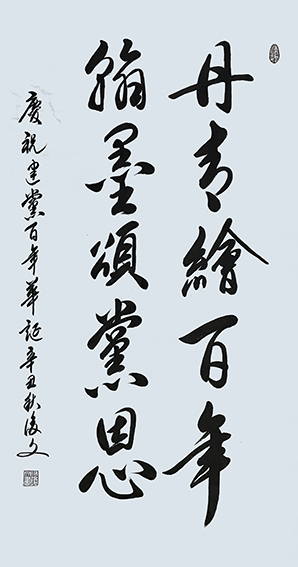 丹青繪百年
翰墨頌黨恩
慶祝建黨百年華誕辛丑秋後文